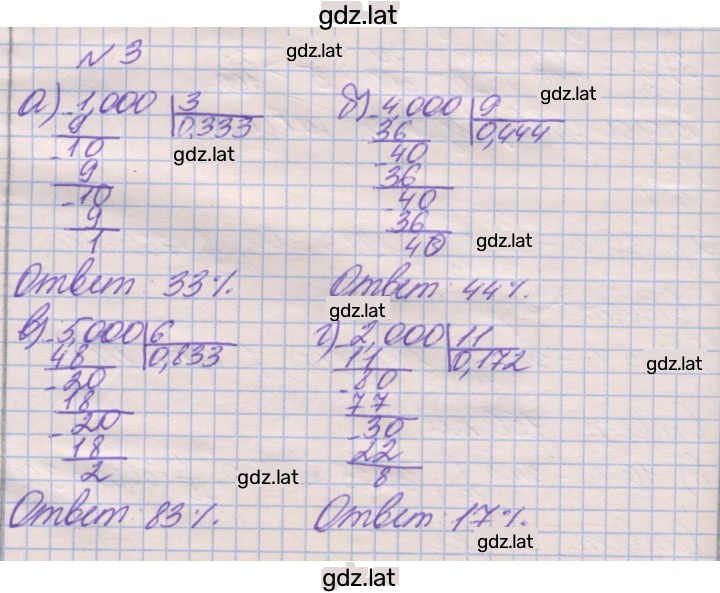 gdz.lat
№ 3
gdz.lat
а) 1,000 | 3
9 0,333
-10
9
-10
9
1
gdz.lat
б) 4,000 | 9
36 0,444
-40
36
-40
36
40
gdz.lat
gdz.lat
Ответ 33%.
Ответ 44%.
gdz.lat
в) 5,000 | 6
48 0,833
-20
18
-20
18
2
gdz.lat
г) 2,000 | 11
11 0,172
-80
77
-30
22
8
gdz.lat
Ответ 83%.
Ответ 17%.
gdz.lat
gdz.lat